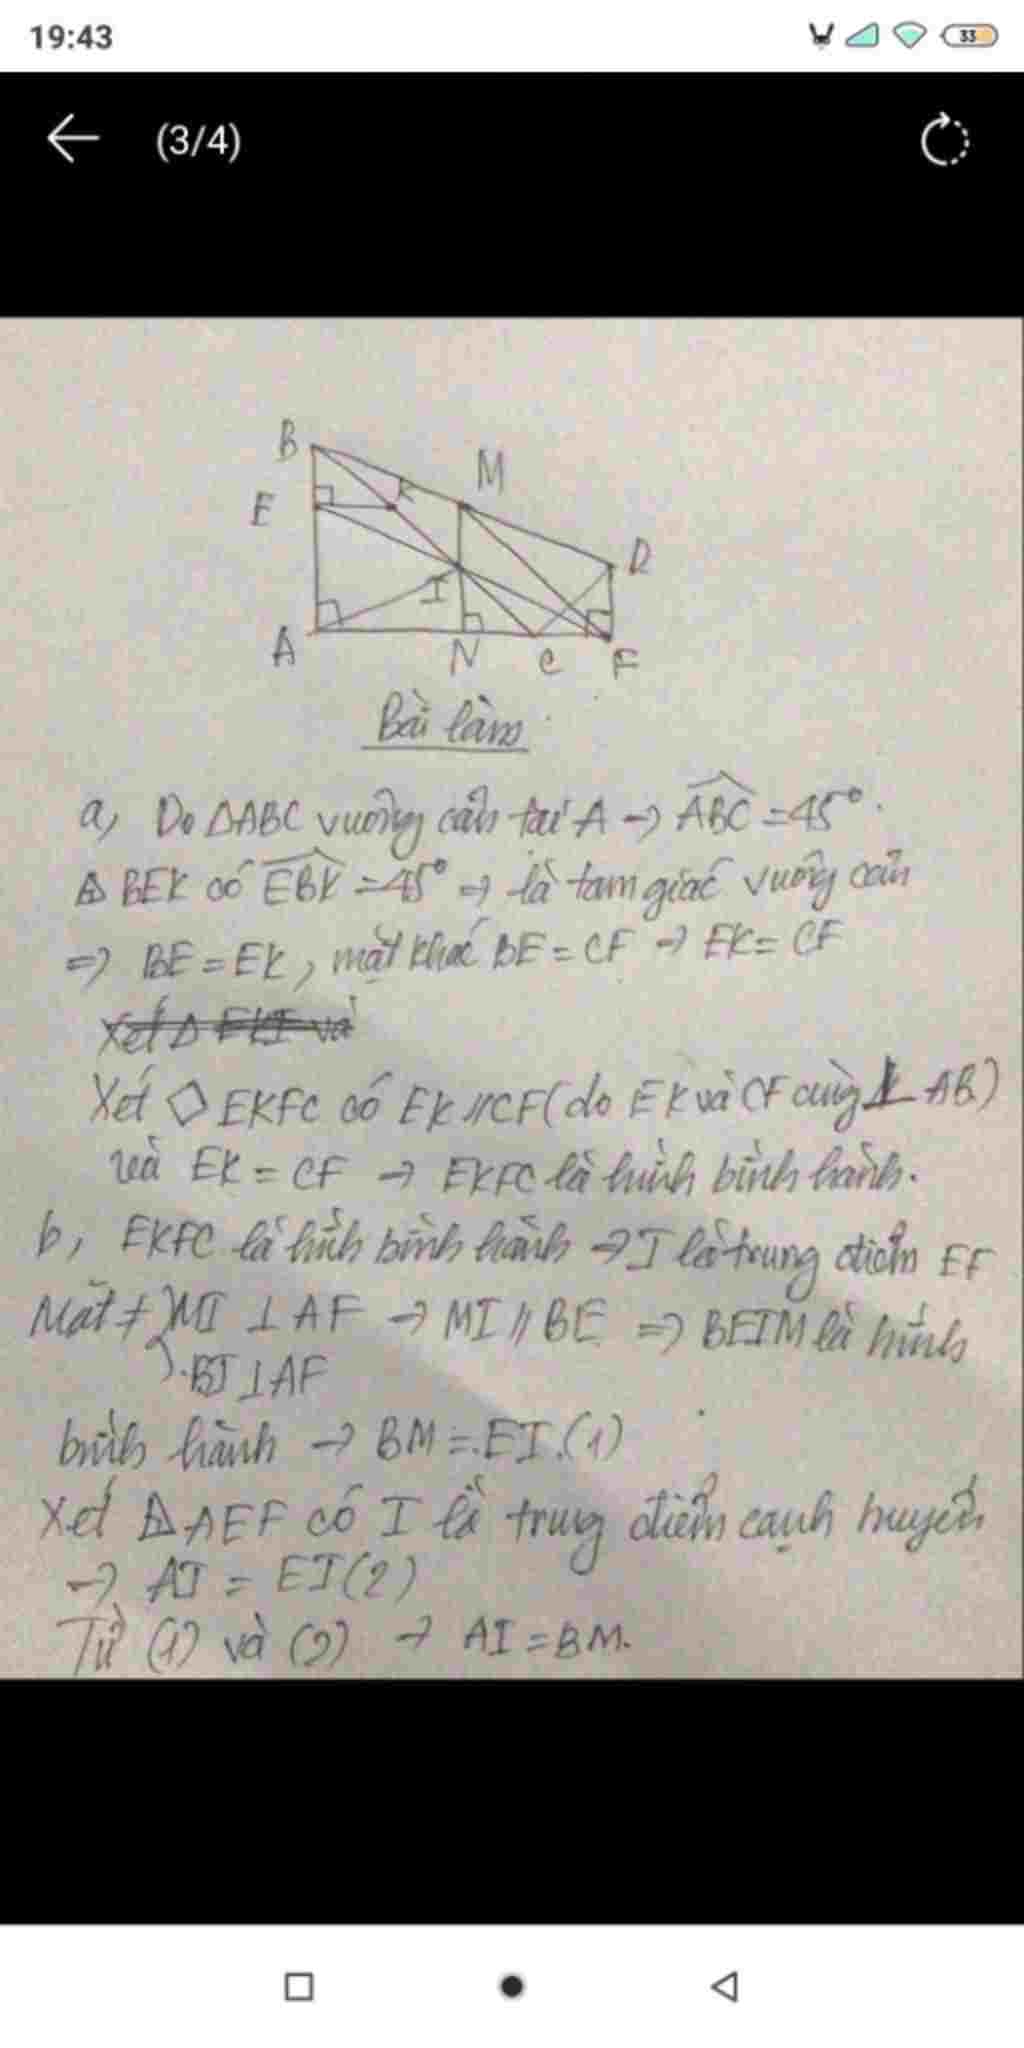 19:43
33
(3/4)
B
M
E
K
D
I
A
N
C
F
Bài làm
a, Do ΔABC vuông cân tại A → ABC = 45°.
Δ BEK có EBK = 45° => là tam giác vuông cân
=> BE = EK, mặt khác BE = CF → EK = CF
Xét Δ EKI và
Xét ◇ EKFC có EK // CF (do EK và CF cùng ⊥ AB)
và EK = CF → EKFC là hình bình hành.
b, EKFC là hình bình hành → I là trung điểm EF
Mặt ≠ MI ⊥ AF → MI // BE => BEIM là hình
BI ⊥ AF
bình hành → BM = EI. (1)
Xét Δ AEF có I là trung điểm cạnh huyền
→ AI = EI (2)
Từ (1) và (2) → AI = BM.